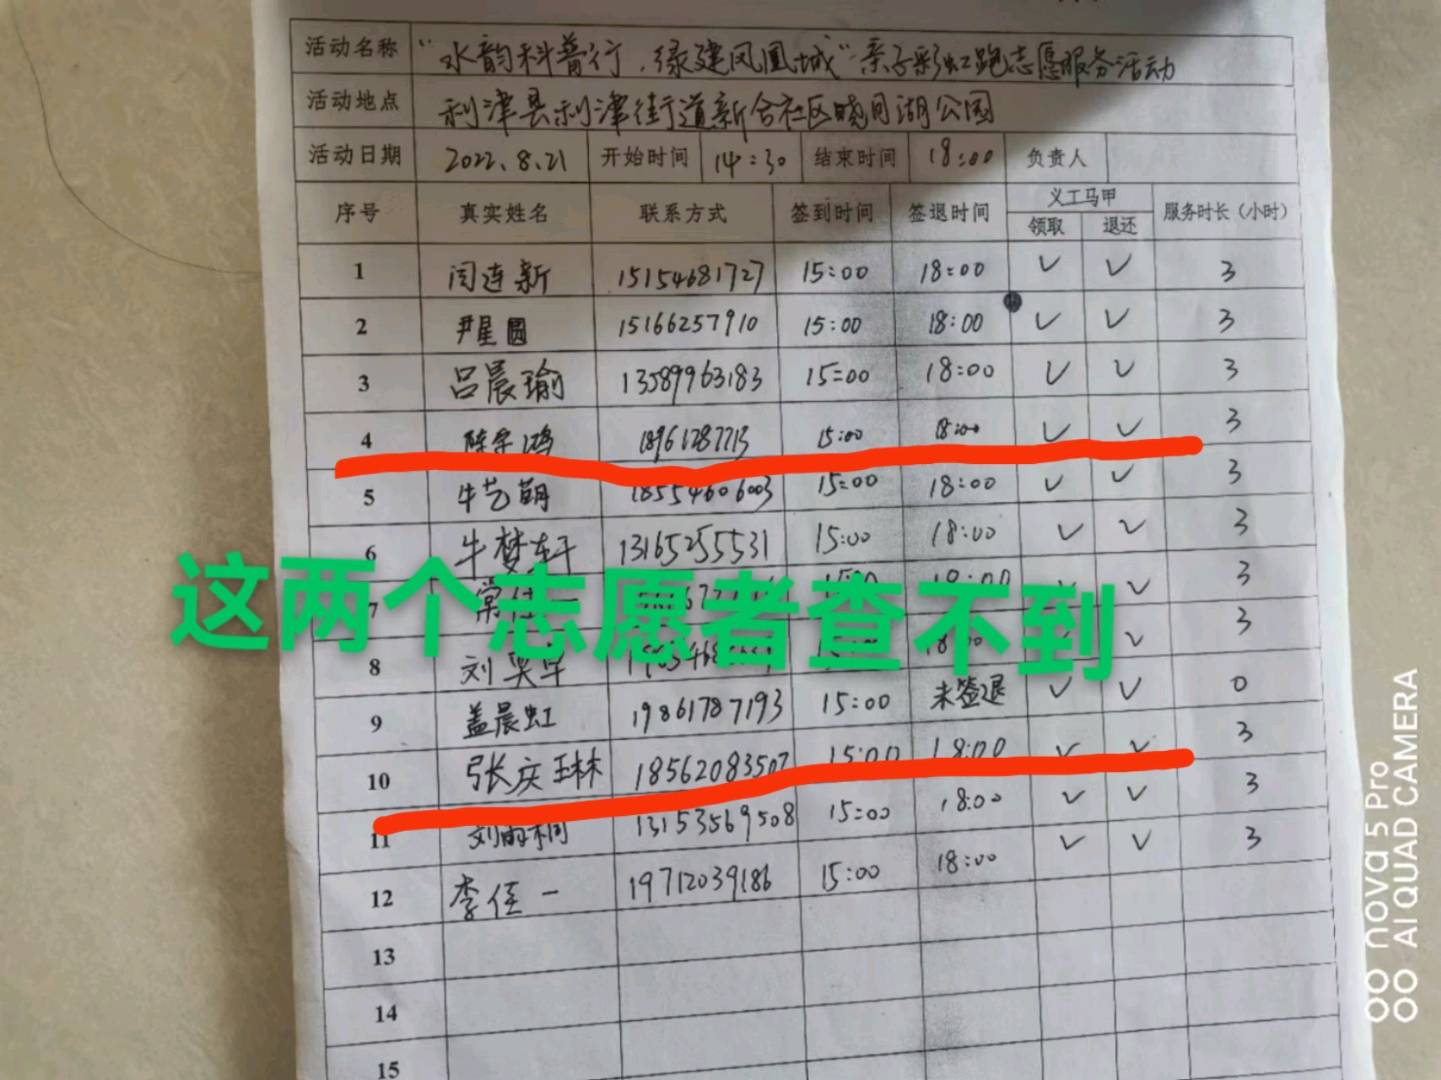 活动名称 “水韵科普行,绿建凤凰城”亲子彩虹跑志愿服务活动
活动地点 利津县利津街道新合社区晓月湖公园
活动日期 2022.8.21 开始时间 14:30 结束时间 18:00 负责人
序号 真实姓名 联系方式 签到时间 签退时间 义工马甲 领取 退还 服务时长(小时)
1 闫连新 15154681727 15:00 18:00 ✓ ✓ 3
2 尹星圆 15166257910 15:00 18:00 ✓ ✓ 3
3 吕晨瑜 13589963183 15:00 18:00 ✓ ✓ 3
4 鸿 15:00 18:00 ✓ ✓ 3
5 牛艺萌 18554606003 15:00 18:00 ✓ ✓ 3
6 牛梦轩 13165255531 15:00 18:00 ✓ ✓ 3
这两个志愿者查不到
7 常 18:00 ✓ ✓ 3
8 刘 ✓ 3
9 盖晨虹 19861787193 15:00 未签退 ✓ ✓ 0
10 张庆琳 18562083507 15:00 18:00 ✓ ✓ 3
11 刘雨桐 13153569508 15:00 18:00 ✓ ✓ 3
12 李佳一 19712039186 15:00 18:00 ✓ ✓ 3
13
14
15
nova 5 Pro
AI QUAD CAMERA